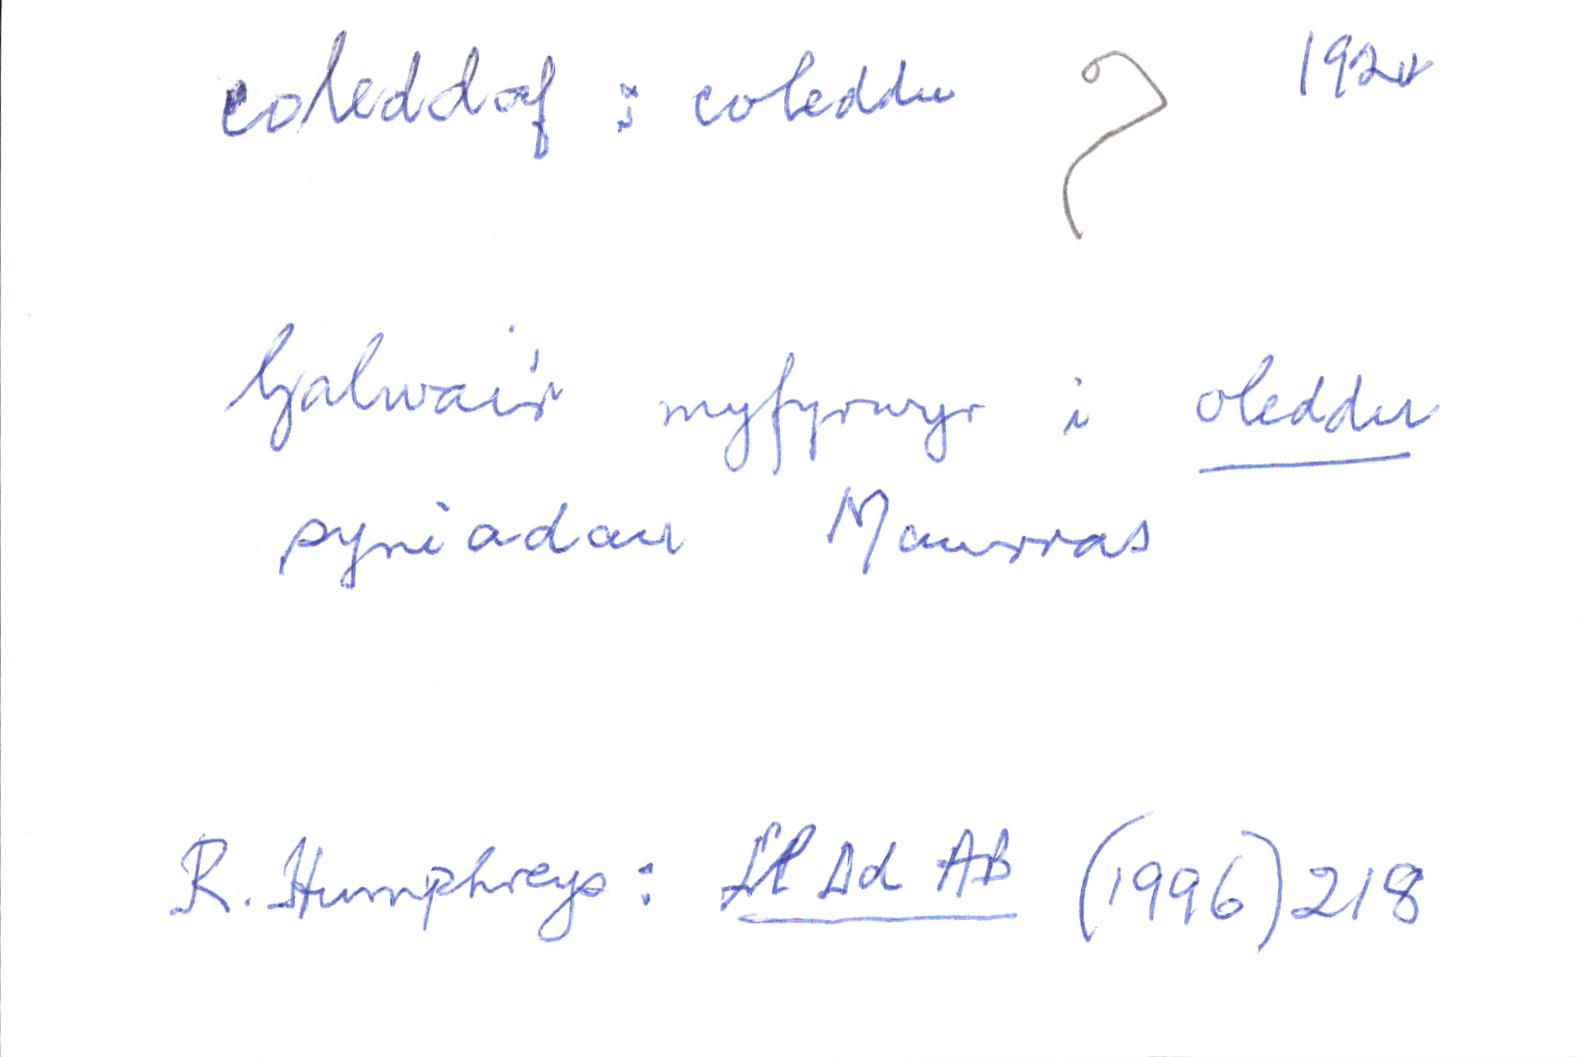 coleddaf : coleddu 192
Galwai'r myfyrwyr i oleddu
syniadau Maurras
R. Humphreys: Ll Dd AB (1996) 218